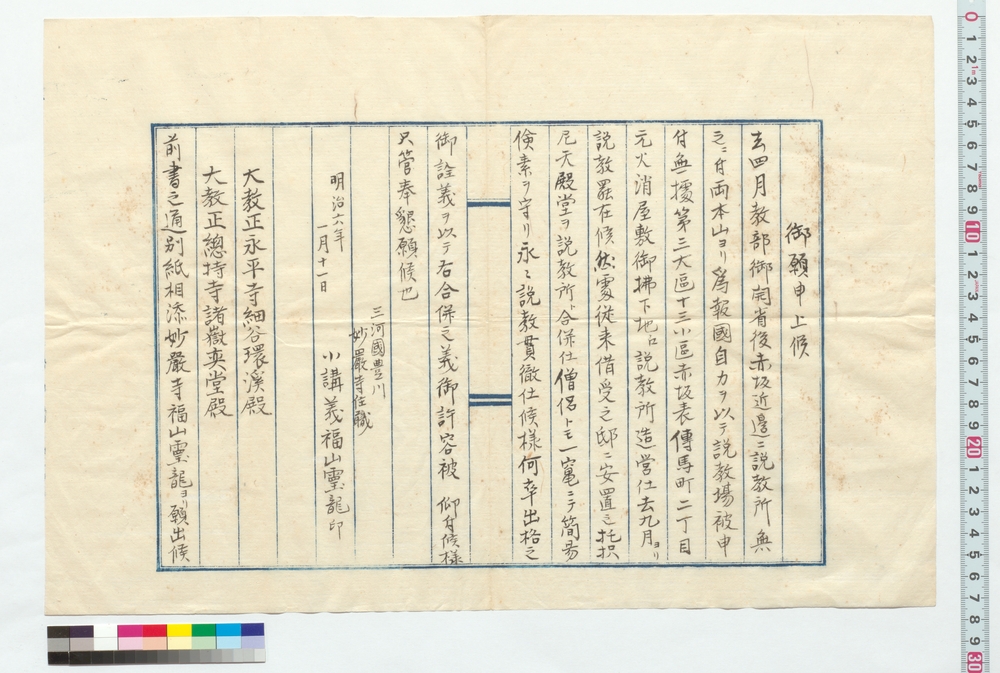 御願申上候
去四月教部御開省後赤坂近邊ニ説教所無
之ニ付両本山ヨリ為報國自力ヲ以テ説教場被申
付無擾第三大區十三小區赤坂表傳馬町二丁目
元火消屋敷御拂下地ヘ説教所造営仕去九月ヨリ
説教罷在候然處従来借受之邸ニ安置之托枳
尼天殿堂ヲ説教所ヘ合併仕僧侶トモ一竃ニテ簡易
倹素ヲ守リ永ク説教貫徹仕候様何卒出格之
御詮義ヲ以テ右合併之義御許容被 仰付候様
只管奉懇願候也
三河國豊川
妙嚴寺住職
明治六年
一月十一日
小講義福山霊龍印
大教正永平寺細谷環溪殿
大教正總持寺諸嶽奕堂殿
前書之通別紙相添妙嚴寺福山霊龍ヨリ願出候
0 1 2 3 4 5 6 7 8 9 10 1 2 3 4 5 6 7 8 9 20 1 2 3 4 5 6 7 8 9 30